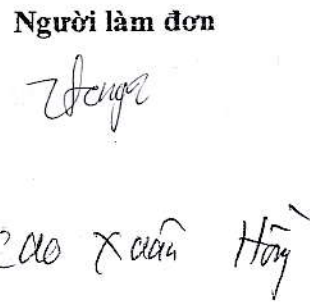 Người làm đơn
Cao Xuân Hồng